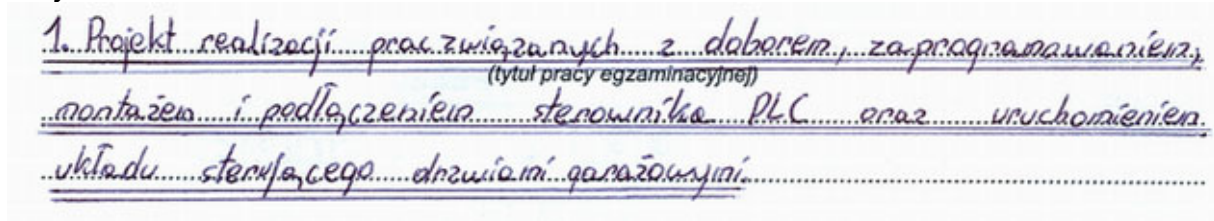 1. Projekt realizacji prac związanych z doborem, zaprogramowaniem,
(tytuł pracy egzaminacyjnej)
montażem i podłączeniem sterownika PLC oraz uruchomieniem
układu sterującego drzwiami garażowymi.